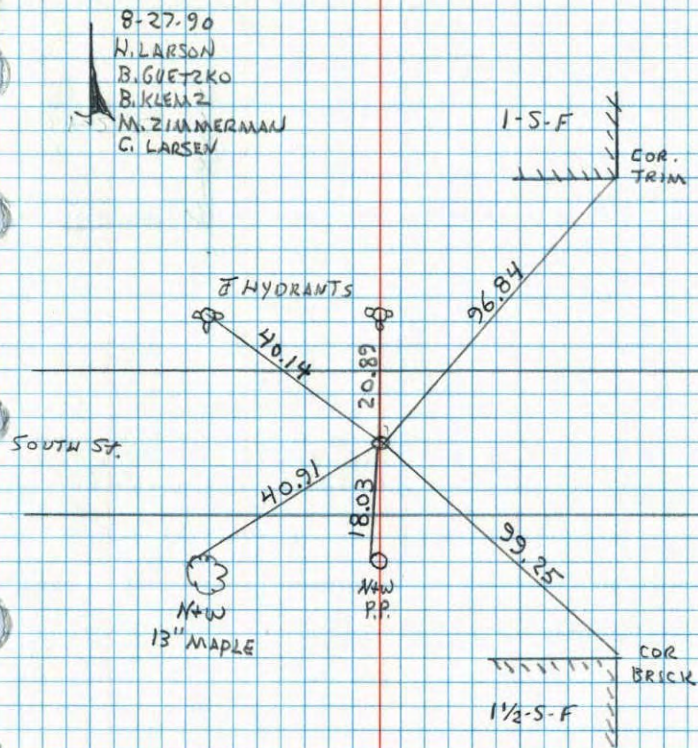 8-27-90
H. LARSON
B. GUETZKO
B. KLEMZ
M. ZIMMERMAN
C. LARSEN
1-S-F
COR.
TRIM
HYDRANTS
96.84
40.14
20.89
SOUTH ST.
40.91
18.03
99.25
N+W
13" MAPLE
N+W
P.P.
COR
BRICK
1 1/2-S-F